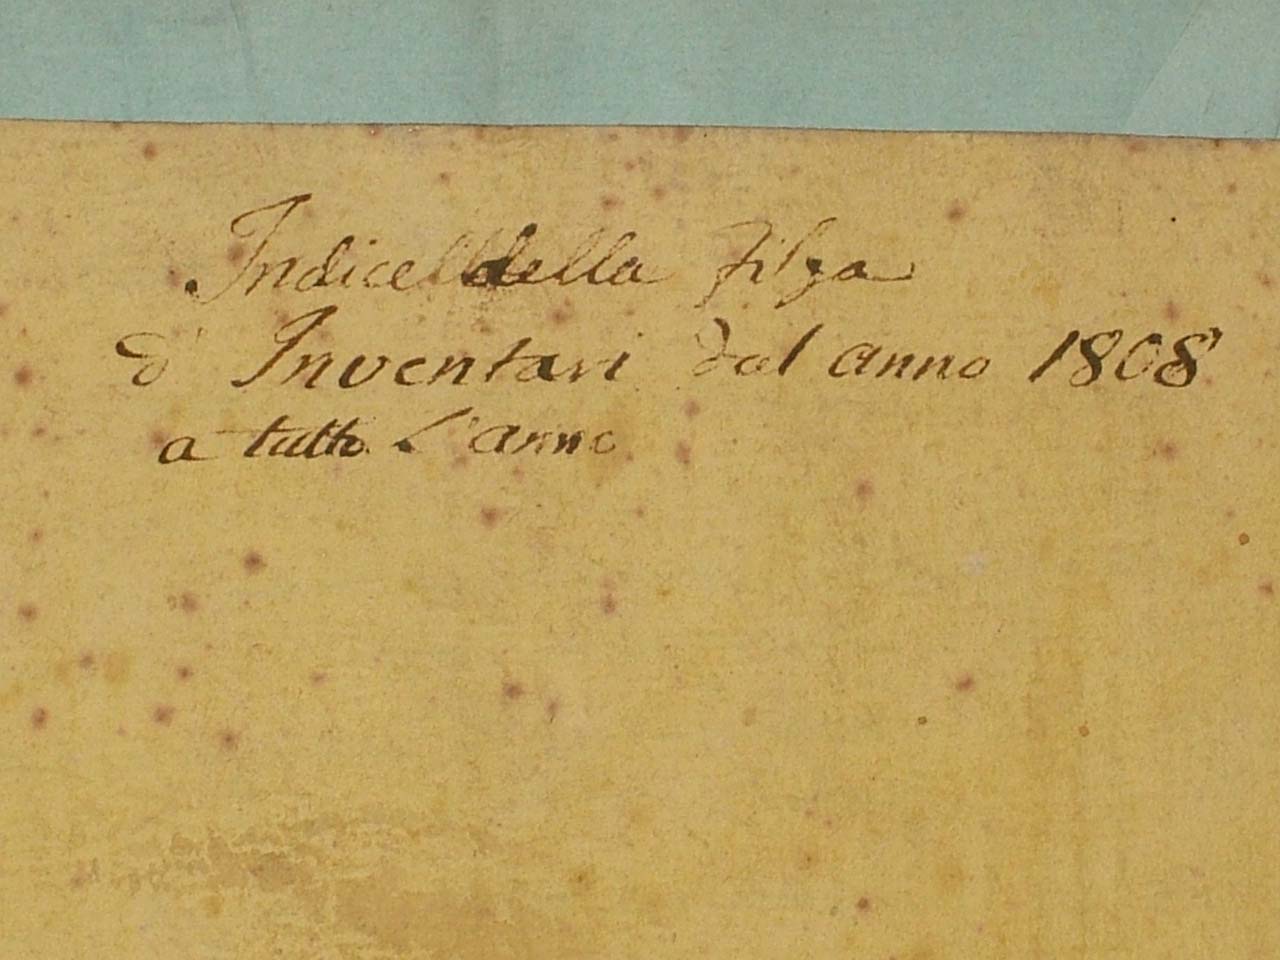 Indice della Filza
d' Inventari dal anno 1808
a tutto L'anno